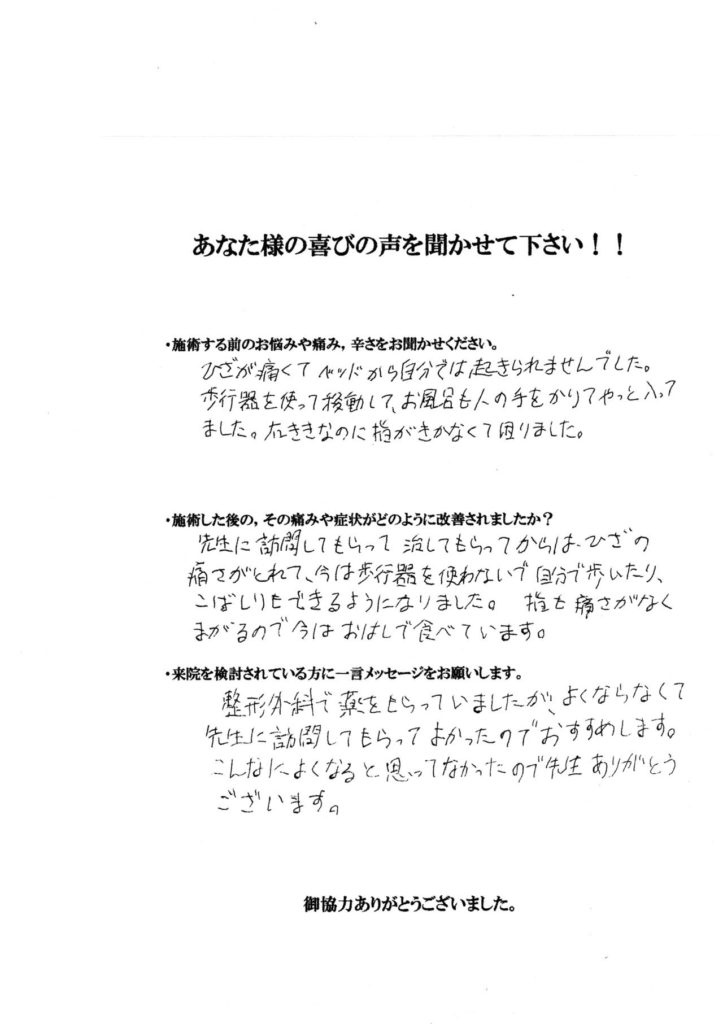 あなた様の喜びの声を聞かせて下さい！！
・施術する前のお悩みや痛み，辛さをお聞かせください。
ひざが痛くてベッドから自分では起きられませんでした。
歩行器を使って移動して、お風呂も人の手をかりてやっと入って
ました。右ききなのに指がきかなくて困りました。
・施術した後の，その痛みや症状がどのように改善されましたか？
先生に訪問してもらって治してもらってからは、ひざの
痛さがとれて、今は歩行器を使わないで自分で歩いたり、
こばしりもできるようになりました。指も痛さがなく
まがるので今はおはしで食べています。
・来院を検討されている方に一言メッセージをお願いします。
整形外科で薬をもらっていましたが、よくならなくて
先生に訪問してもらってよかったのでおすすめします。
こんなによくなると思ってなかったので先生ありがとう
ございます。
御協力ありがとうございました。